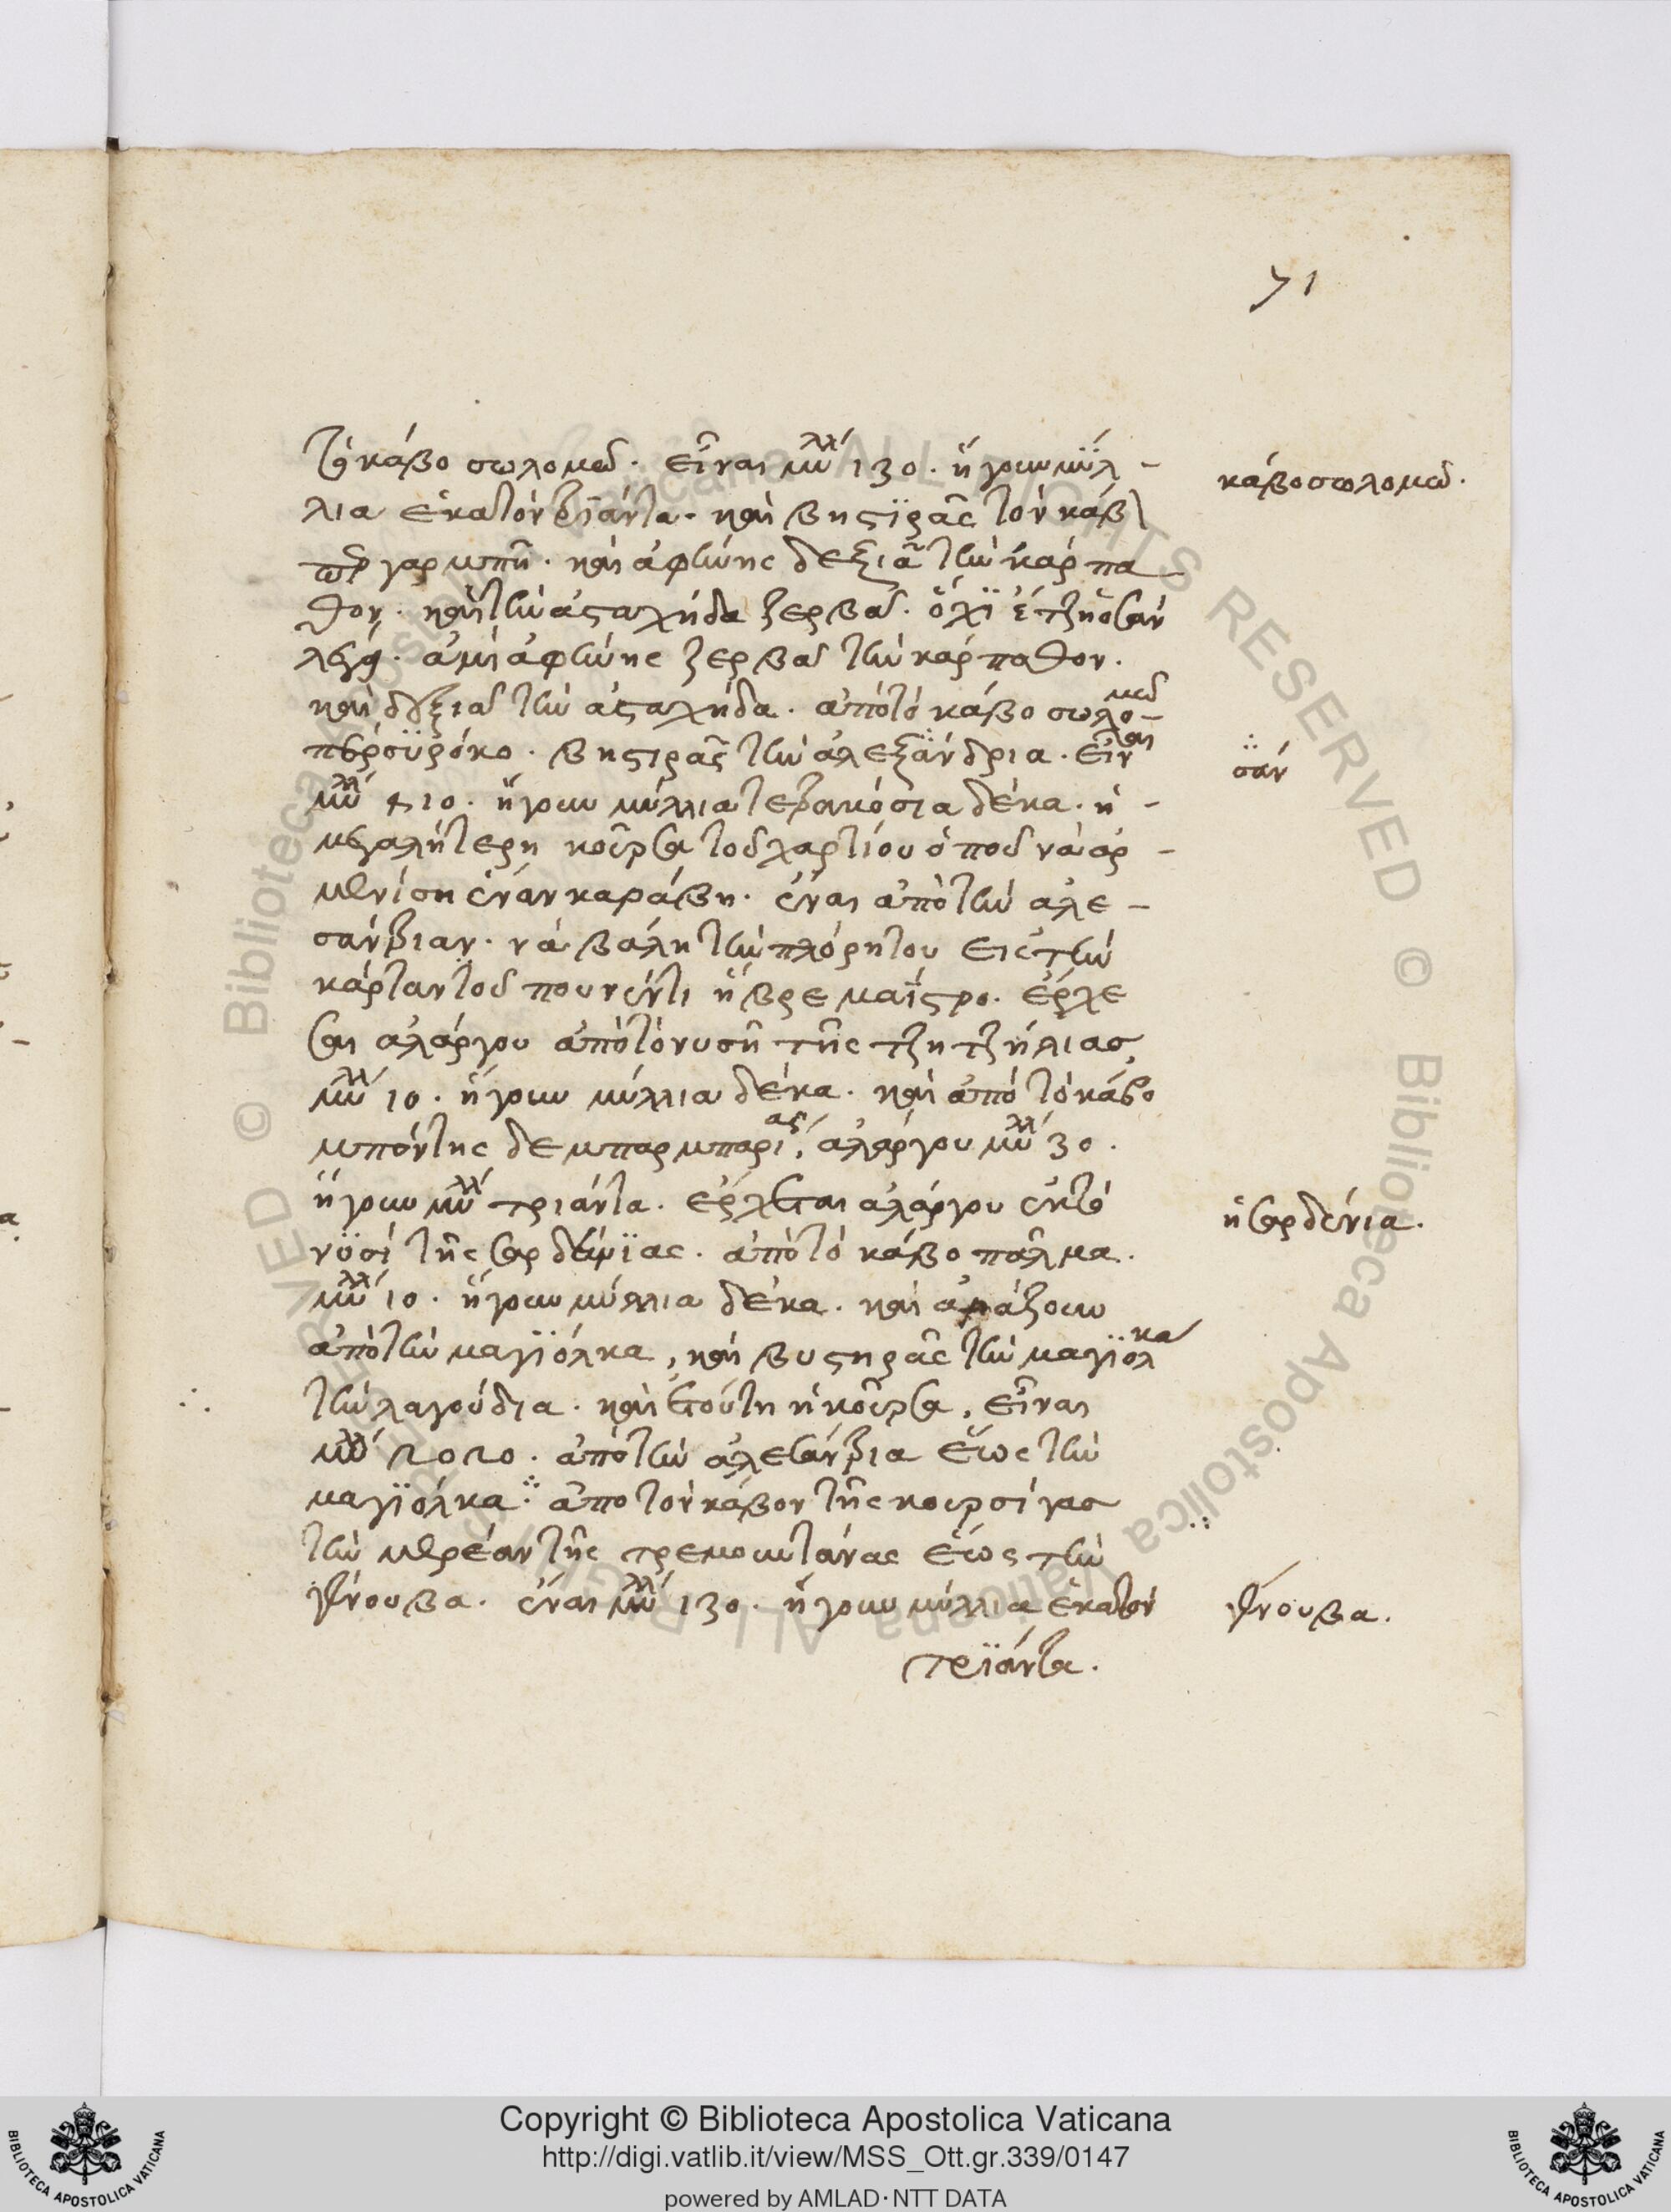 71
τὸ κάβο σωλομοῦ. εἶναι μύλλ 130. ἤγουν μΰλ-
λια ἑκατόν τριάντα. καὶ βηστιρᾶς τόν κάβ
γαρμπῆ. καὶ ἀφίνης δεξιᾶ τὴν κάρπα
θον. καὶ τὴν ἀσταχήδα ζερβά. ὄχϊ ἔτζη σάν
λέγη. ἀμὴ ἀφίνης ζερβὰ τὴν κάρπαθον.
καὶ δεξιὰ τὴν ἀσταχήδα. ἀπὸ τὸ κάβο σωλομοῦ
περ σϋρόκο. βηστιρᾶς τὴν ἀλεξάνδρια. εἶναι
μύλλ 410. ἤγουν μύλλια τετρακόσια δέκα. ἡ
μεγαλήτερη κοῦρσα τοῦ χαρτίου ὁποῦ νὰ ἀρ-
μενίση ἕναν καράβη. ἔναι ἀπὸ τὴν ἀλε-
σάντριαν. νὰ βάλη τὴν πλόρη του εἰς τὴν
κάρταν τοῦ πουνέντι ἥβρε μαΐστρο. ἔρχε
σαι ἀλάργου ἀπὸ τὸ νυσῆ τῆς τζητζήλιας
μύλλ 10. ἤγουν μύλλια δέκα. καὶ ἀπὸ τὸ κάβο
μπόντης δε μπαρμπαριάς, ἀλάργου μύλλ 30.
ἤγουν μύλλ τριάντα. ἔρχεσαι ἀλάργου ἐκ τὸ
νϋσί τῆς σαρδένϊας. ἀπὸ τὸ κάβο πάλμα.
μύλλ 10. ἤγουν μύλλια δέκα. καὶ ἀράζουν
ἀπὸ τὴν μαγϊόλκα, καὶ βυστηρᾶς τὴν μαγϊόλκα
τὴν λαγούδια. καὶ ἐτούτη ἡ κοῦρσα, εἶναι
μύλλ 2020. ἀπὸ τὴν ἀλεσάντρια ἕως τὴν
μαγϊόλκα. ἀπὸ τὸν κάβον τῆς κουρσίγας
τὴν μερέαν τῆς τρεμουντάνας ἕως τὴν
γένουβα. ἔναι μύλλ 130. ἤγουν μύλλια ἑκατόν
τρϊάντα.
κάβο σωλομοῦ.
σάν
ἡ σαρδένια.
γένουβα.
Copyright © Biblioteca Apostolica Vaticana
http://digi.vatlib.it/view/MSS_Ott.gr.339/0147
powered by AMLAD·NTT DATA
BIBLIOTECA APOSTOLICA VATICANA
BIBLIOTECA APOSTOLICA VATICANA